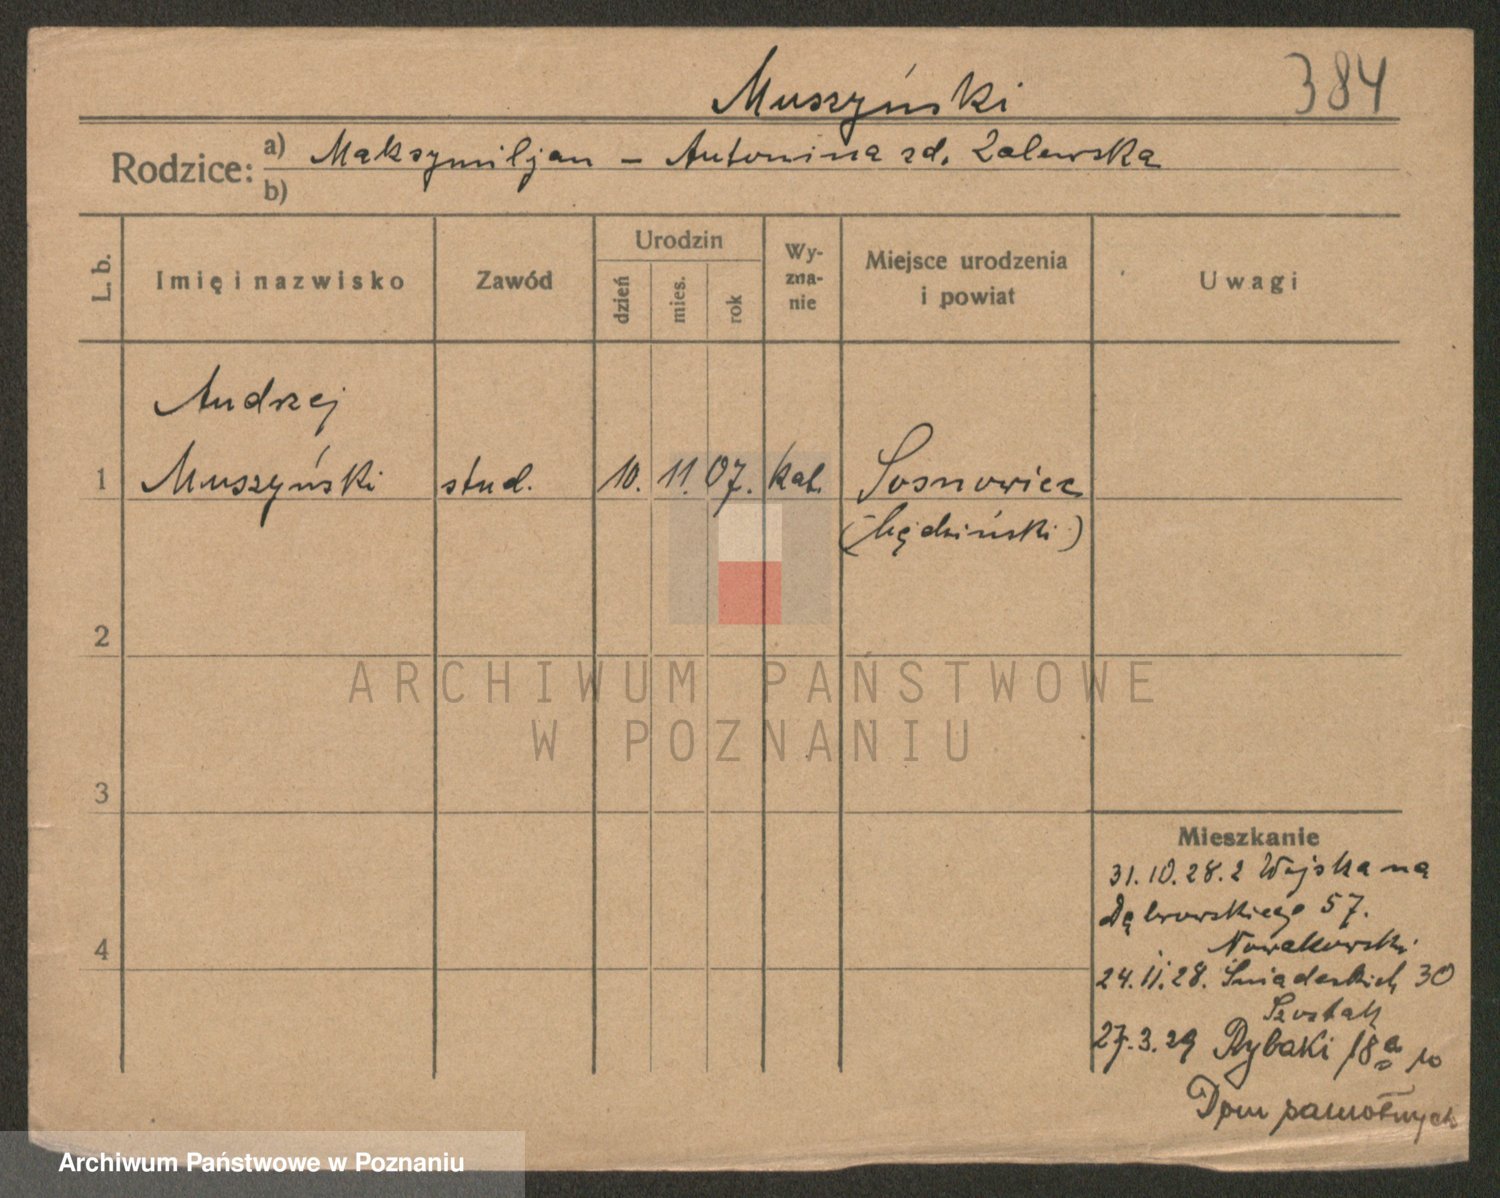 Muszyński
384
Rodzice: a) Maksymiljan – Antonina zd. Zalewska
b)
L. b.
Imię i nazwisko
Zawód
Urodzin
dzień
mies.
rok
Wy-
zna-
nie
Miejsce urodzenia
i powiat
Uwagi
Andrzej
1 Muszyński stud. 10. 11. 07. kat. Sosnowiec
(będziński)
2
ARCHIWUM PAŃSTWOWE
W POZNANIU
3
Mieszkanie
31.10.28. z Wojska na
Dąbrowskiego 57.
Nowakowski
4
24.11.28. Śniadeckich 30
Szostak
27.3.29 Rybaki 18a
Dom samotnych
Archiwum Państwowe w Poznaniu